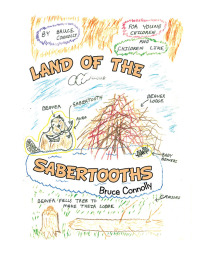 BY BRUCE CONNOLLY
FOR YOUNG CHILDREN
AND
CHILDREN LIKE
LAND OF THE
BEAVER
SABERTOOTH
BEAVER LODGE
BABY BEAVERS
SABERTOOTHS
Bruce Connolly
BEAVER FELLS TREE TO
MAKE THEIR LODGE